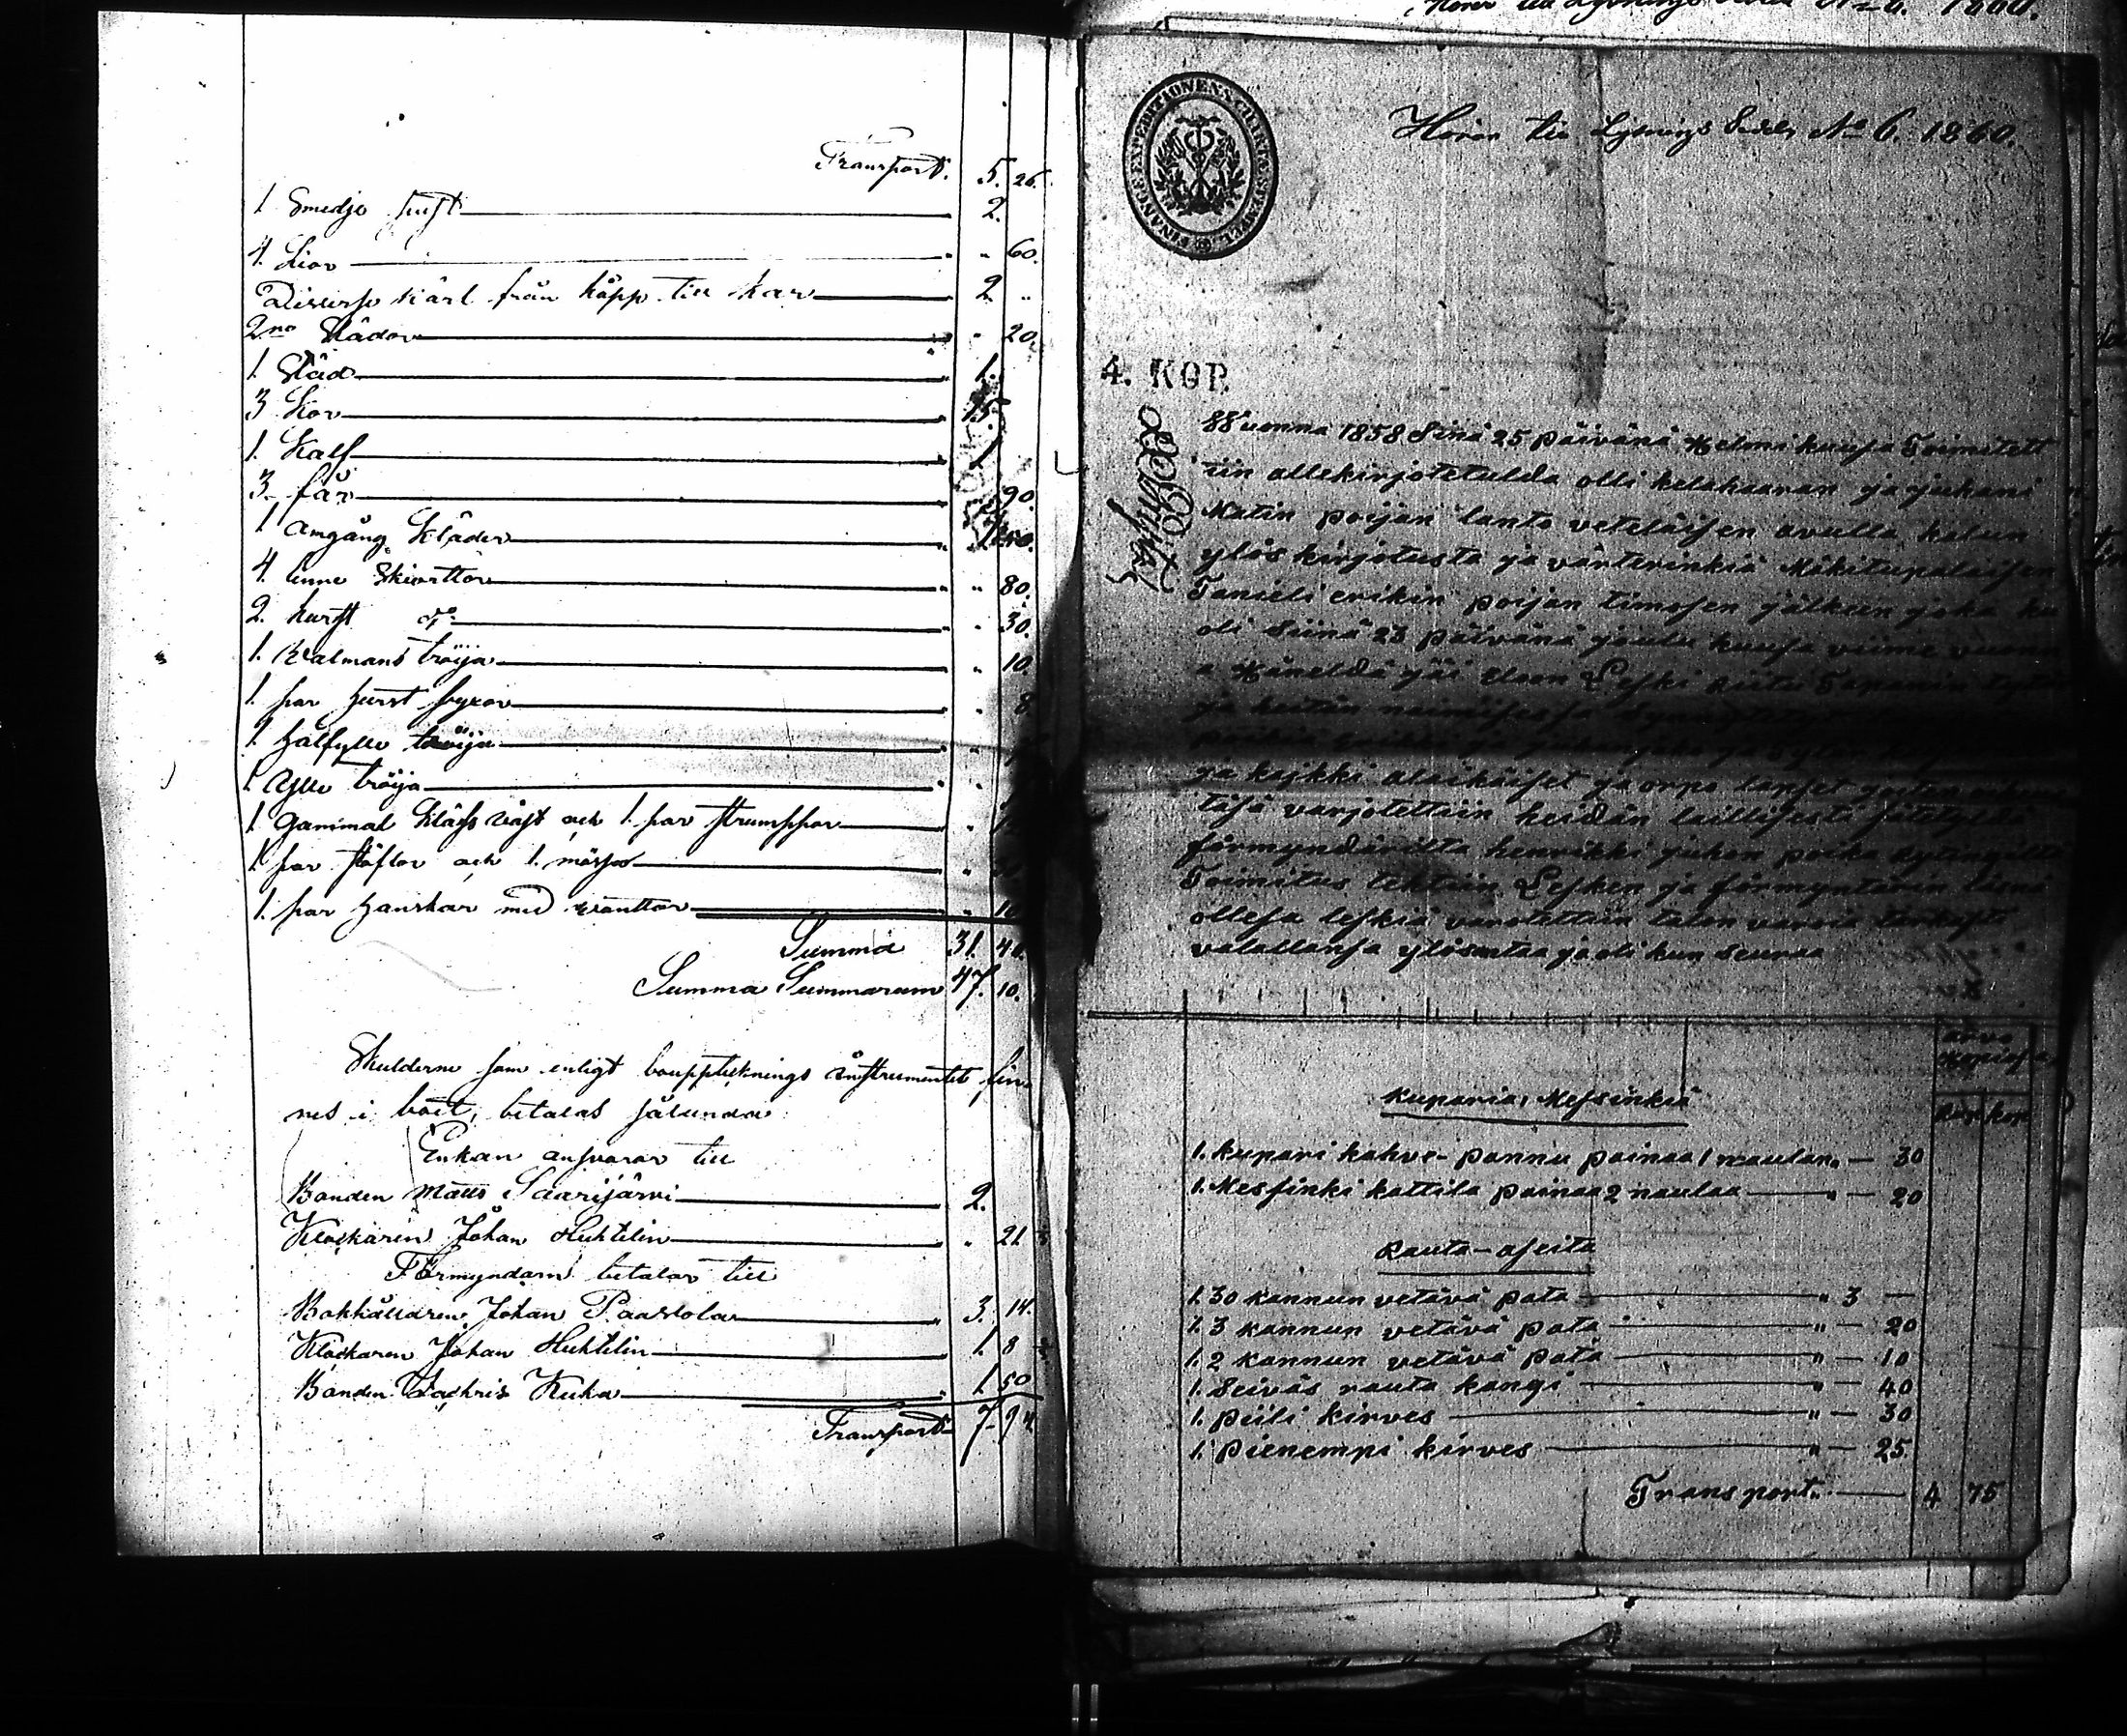 Transport. 5. 26.
1 Smedje 2.
4. Liar " 60.
Diverse kärl från kåpp till kar 2 "
2ne Slädor " 20.
1. Städ 1.
3 Kor 15
1. Kalf 1
3. får 90.
1 omgång Kläder 50.
4. linne Skiorttor " 80.
2. hurst do " 30.
1. Walmans tröija " 10.
1 par hurst byxor " 8.
1. halfylle tröija
1. Ylle tröija
1 gammal Kläds väst och 1. par strumppor
1 par stöflor och 1. mössa
1. par hanskar med vanttar
Summa 31. 4
Summa Summarum 47. 10.
Skulderne som enligt bouppteknings instrumentet fin-
nes i boet, betalas sålunda
Enkan ansvarar till
Bonden Matts Saarijärvi 2.
Klockaren Johan Huhtelin " 21
Förmyndarn betalar till
Bokhållaren Johan Paavola 3. 14.
Klockaren Johan Huhtelin 1. 8
Bonden Zachris Kuha 1 50
Transport 7. 94
Hörer till Lysnings Sedel No 6. 1860.
FINANCE EXPEDITIONENS CHARTÆ STEMPEL
Hörer till Lysnings Sedel No 6. 1860.
4. KOP.
vuonna 1858 Sinä 25 päivänä Helmi kuusa Toimitett
iin allekirjotetulda olli kelahaaran ja juhani
Matin poijan lanto veteläisen avulla kalun
ylös kirjotusta ja värterinkiä Mäkitupalaisen
Tanieli erikin poijan timosen jälkeen joka ku
oli Siinä 23 päivänä joulu kuusa viime vuonn
a Häneldä jäi eloon Leski Riitu Tapanin
ja heitän
ja kaikki alaikäiset ja orpo lapset
täsä varjotettiin heidän laillisesti
förmyndäriltä henrikki juhon poika
Toimitus tehtiin Lesken ja förmyntärin läsnä
ollesa leskiä varotettiin talon varoia tarkasti
valallansa ylösantaa ja oli kun Seuraa
arvo
Hopiasa
Rup kop
Kuparia, Messinkiä
1. kupari kahve-pannu painaa 1 naulan " — 30
1. Messinki kattila painaa 2 naulaa " — 20
Rauta-aseita
1. 30 kannun vetävä pata " 3 —
1. 3 kannun vetävä pata " — 20
1. 2 kannun vetävä pata " — 10
1. Seiväs rauta kangi " — 40
1. piili kirves " — 30
1. pienempi kirves " — 25.
Transport 4 75